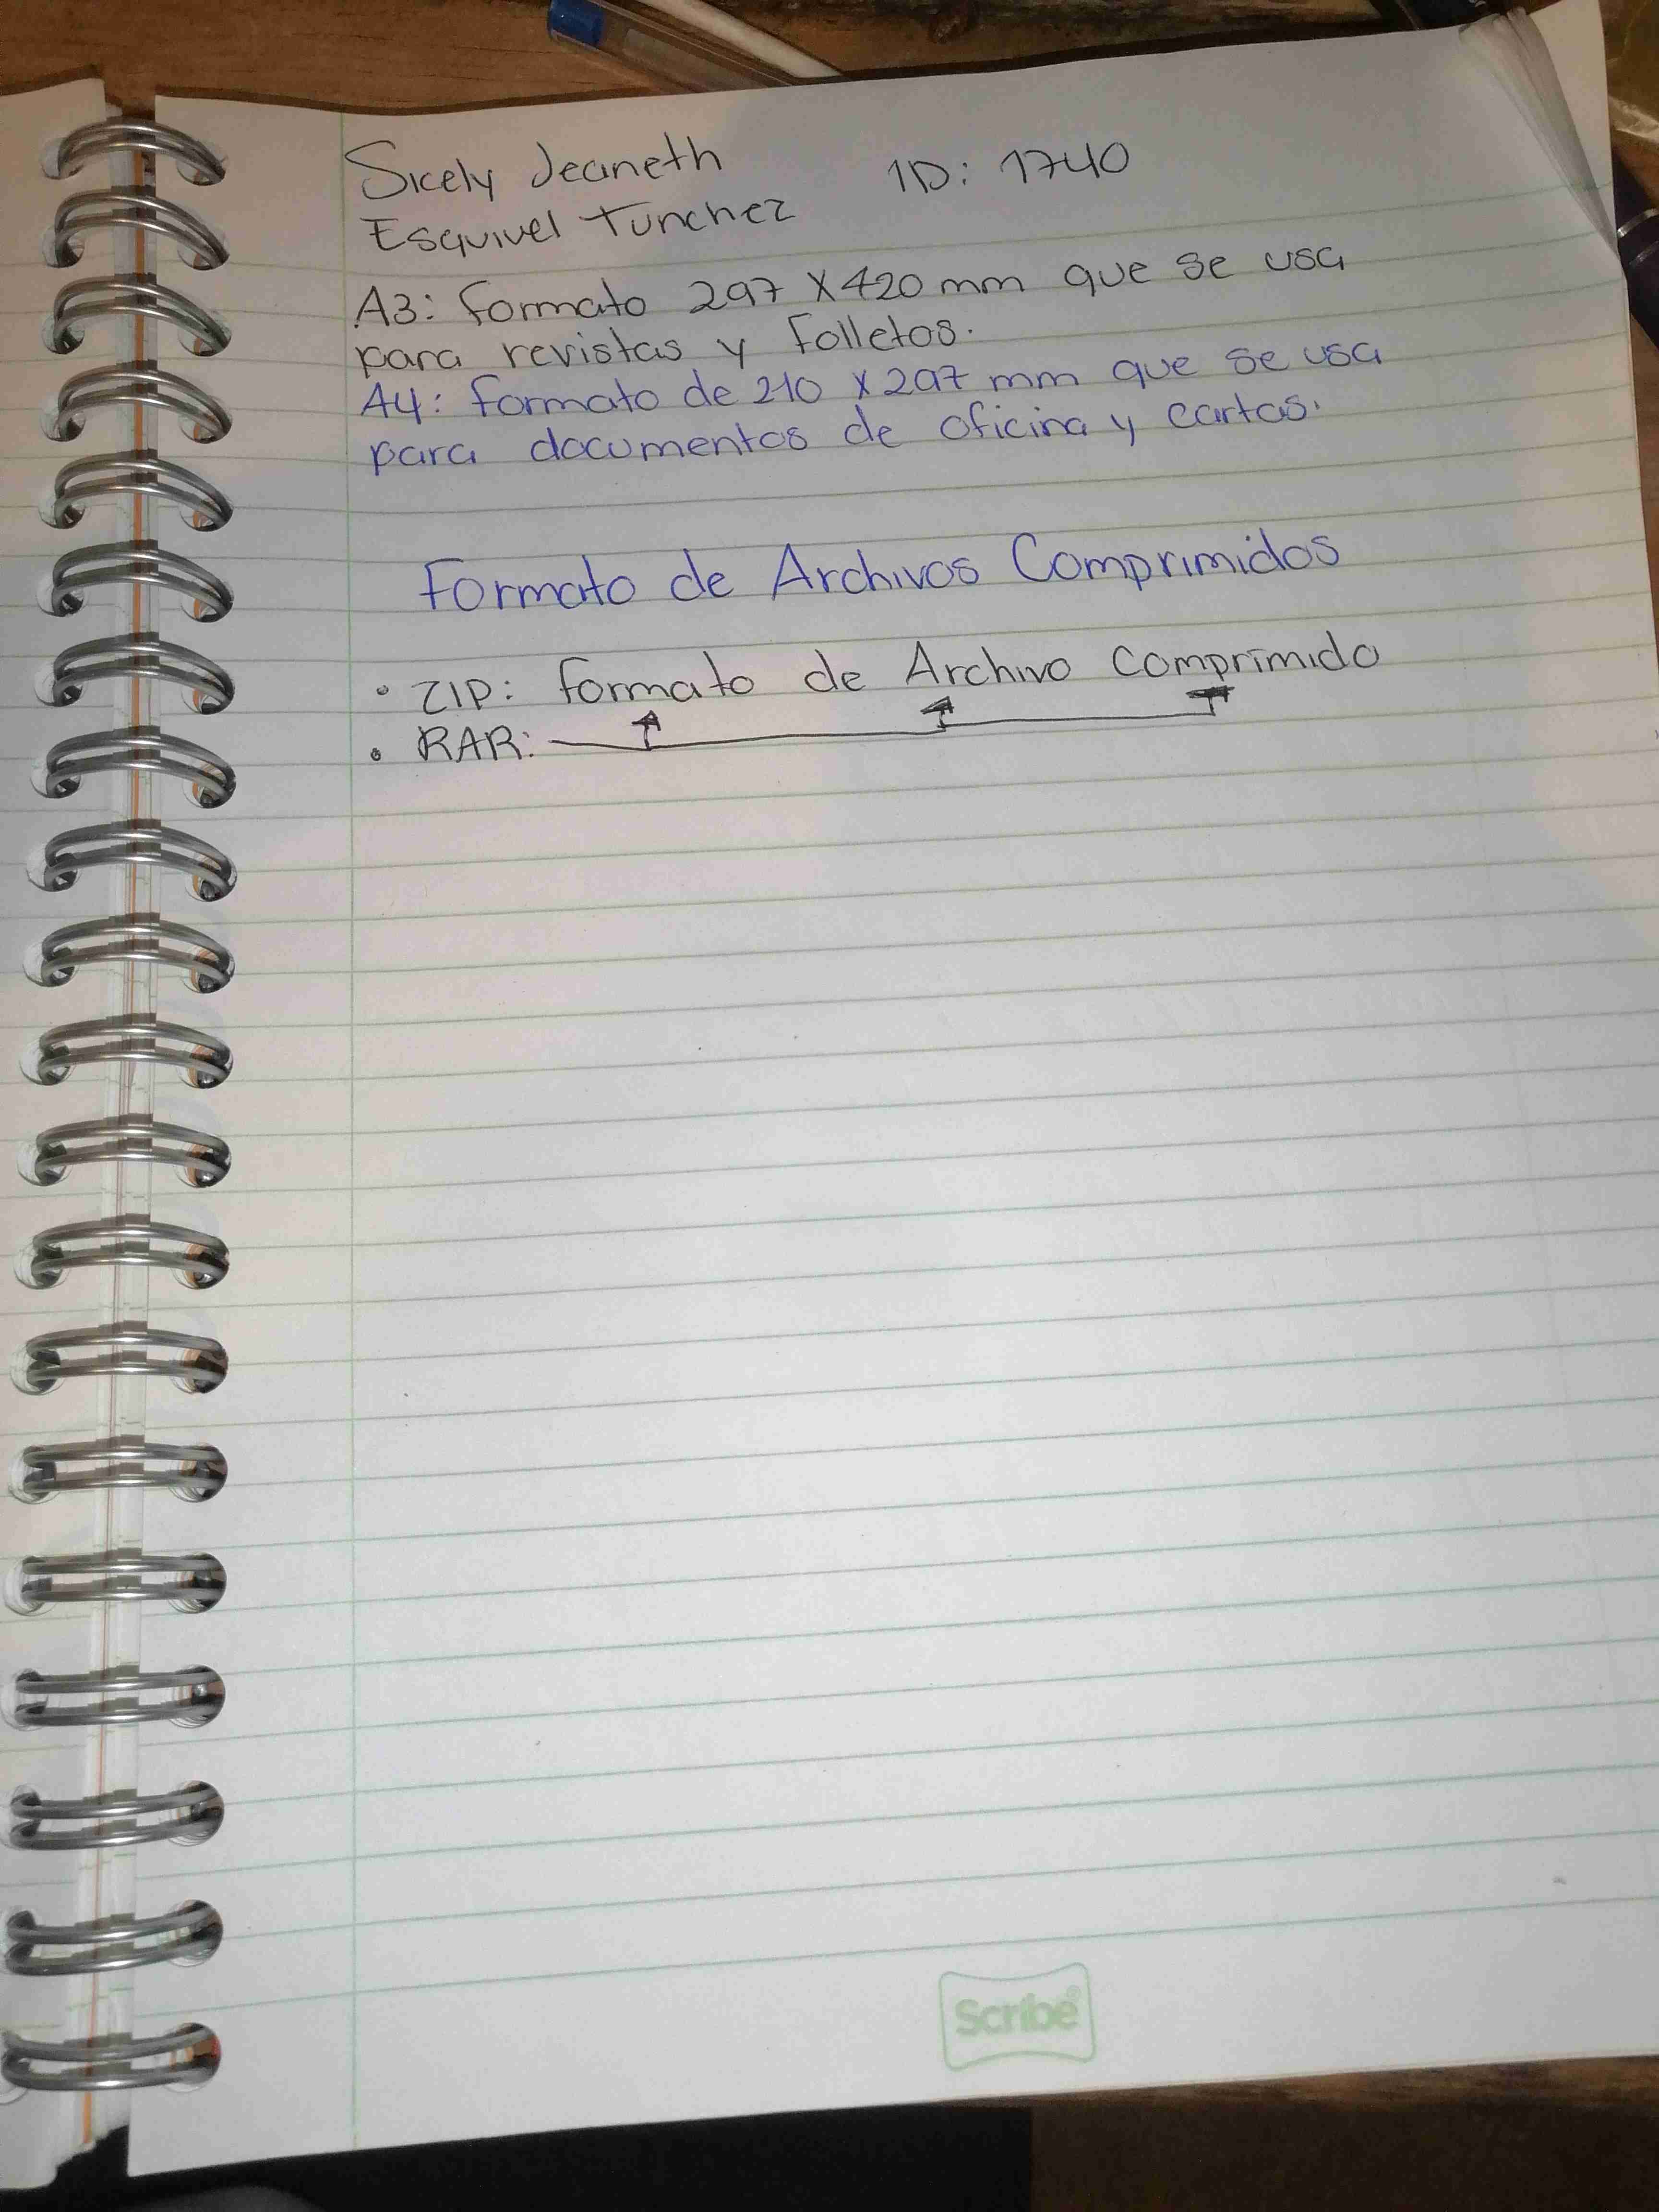 Sicely Jeaneth ID: 1740
Esquivel Tunchez
A3: formato 297 X 420 mm que se usa
para revistas y folletos.
A4: formato de 210 x 297 mm que se usa
para documentos de oficina y cartas.
Formato de Archivos Comprimidos
• ZIP: formato de Archivo Comprimido
• RAR:
Scribe®